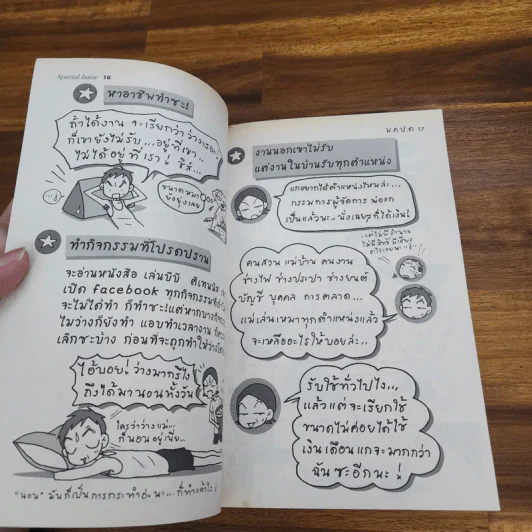 Special Issue 16
หาอาชีพทำซะ!
ถ้าได้งาน จะเรียกว่า ว่างเรอะ!
ก็เขายังไม่รับ...อยู่ที่เขา..
ไม่ได้อยู่ที่เรา! ชิชิ..
ขนาดหมา
ยังยุ่งเลย
ทำกิจกรรมที่โปรดปราน
จะอ่านหนังสือ เล่นบีบี ตีเทนนิส
เปิด facebook ทุกกิจกรรมที่
จะไม่ได้ทำ ก็ทำซะ! แต่หากบาง
ไม่ว่างก็ยังทำ แอบทำเวลางาน ก็
เลิกซะบ้าง ก่อนที่จะถูกทำให้ว่าง
ไอ้บอย! ว่างมากรึไง
ถึงได้มานอนทั้งวัน
ใครว่าว่างแม่...
ก็นอนอยู่เนี่ย...
"นอน" มันก็เป็นการกระทำอ่ะนะ...ก็ทำแล้วไง!
น.ค.ป.ด. 17
งานนอกเขาไม่รับ
แต่งานในบ้านรับทุกตำแหน่ง
แกอยากได้ตำแหน่งไหนล่ะ...
กรรมการผู้จัดการ พ่อแก
เป็นแล้วนะ.. นั่งเฉยๆ ก็ได้เงิน!
แต่ไม่มีอำนาจ
ไม่มีสิทธิ์ มีเสียง
อะไรเลยนะ..!
คนสวน แม่บ้าน คนงาน
ช่างไฟ ช่างประปา ช่างยนต์
บัญชี บุคคล การตลาด...
แม่เล่นเหมาทุกตำแหน่งแล้ว
จะเหลืออะไรให้บอยล่ะ..
รับใช้ทั่วไปไง...
แล้วแต่จะเรียกใช้
ขนาดไม่ค่อยได้ใช้
เงินเดือนแกจะมากกว่า
ฉันซะอีกนะ!